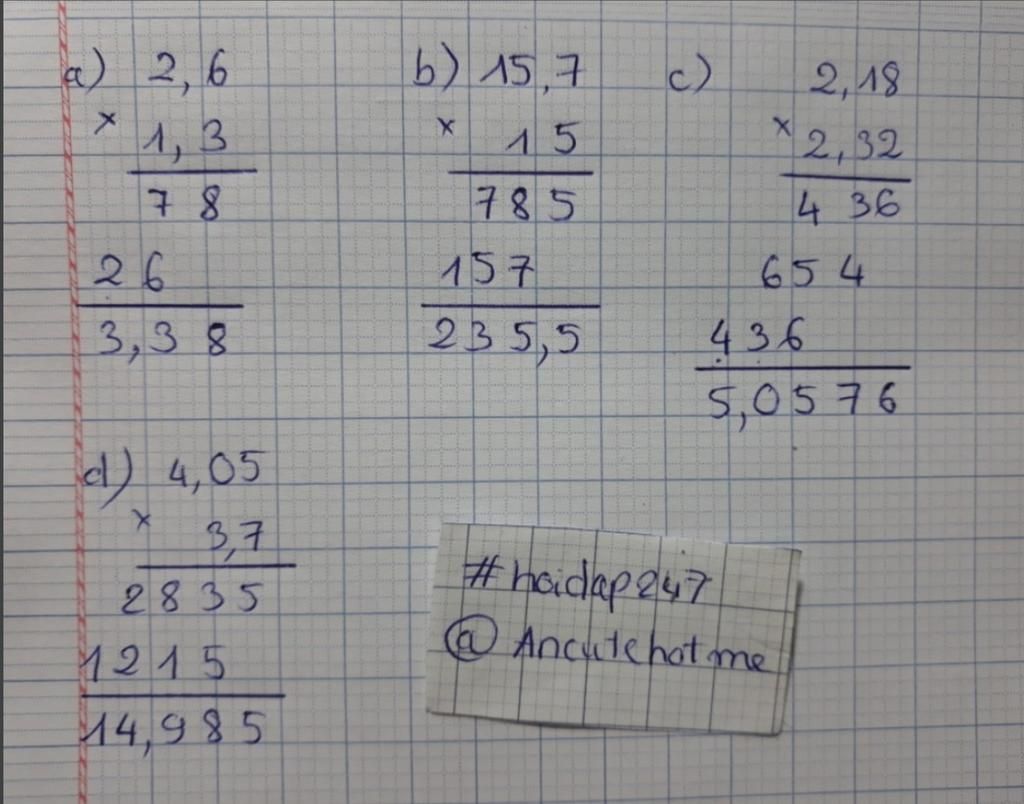 a) 2,6
×
1,3
78
26
3,38
b) 15,7
×
15
785
157
235,5
c) 2,18
×
2,32
436
654
436
5,0576
d) 4,05
×
3,7
2835
1215
14,985
#hoidap247
@ Ancutehotme